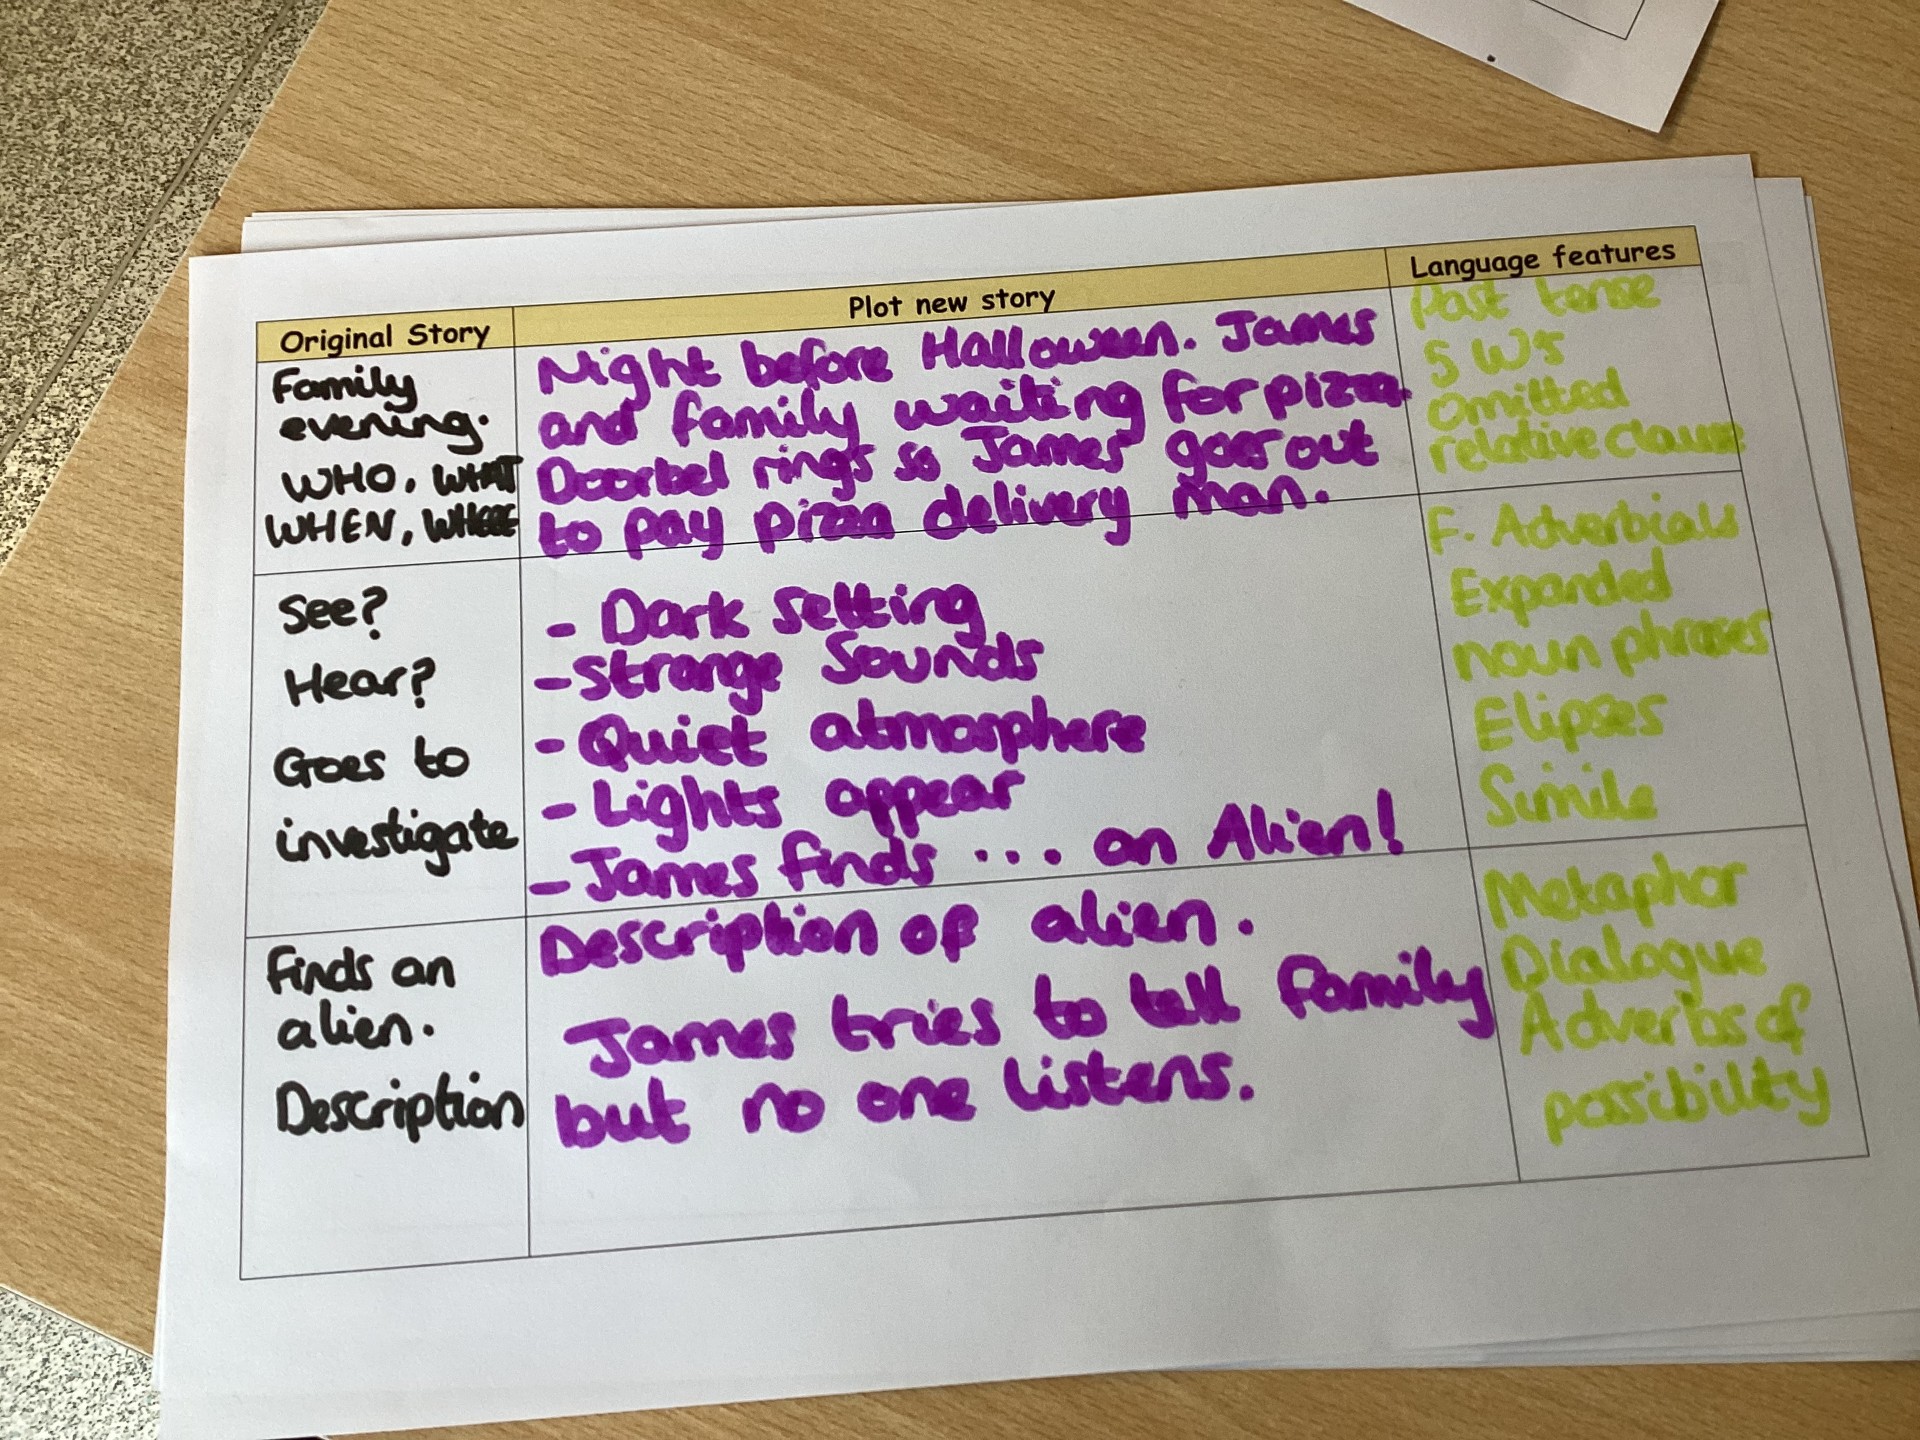 Original Story
Plot new story
Language features
Family
evening.
WHO, WHAT
WHEN, WHERE
Night before Halloween. James
and family waiting for pizza.
Doorbel rings so James goes out
to pay pizza delivery man.
Past tense
5 W's
Omitted
relative clause
See?
Hear?
Goes to
investigate
- Dark setting
- Strange Sounds
- Quiet atmosphere
- Lights appear
- James finds ... an Alien!
F. Adverbials
Expanded
noun phrases
Elipses
Simile
Finds an
alien.
Description
Description of alien.
James tries to tell family
but no one listens.
Metaphor
Dialogue
Adverbs of
possibility